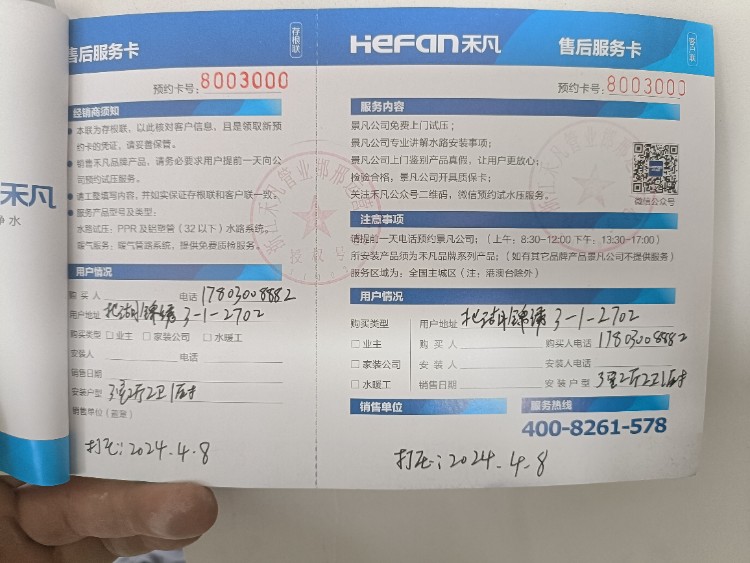 禾凡
净水
售后服务卡
存根联
预约卡号: 8003000
经销商须知
本联为存根联，以此核对客户信息，且是领取新预
约卡的凭证，请妥善保管。
销售禾凡品牌产品，请务必要求用户提前一天向公
司预约试压服务。
请工整填写内容，并如实保证存根联和客户联一致。
服务产品型号及类型:
水路试压: PPR及铝塑管（32以下）水路系统。
暖气服务: 暖气管路系统，提供免费质检服务。
用户情况
购买人 电话 17803008882
用户地址 3-1-2702
购买类型 □业主 □家装公司 □水暖工
安装人 电话
销售日期
安装户型 3室2厅2卫1厨
销售单位（盖章）
打压: 2024.4.8
HEFAN禾凡
售后服务卡
客户联
预约卡号: 8003000
服务内容
景凡公司免费上门试压；
景凡公司专业讲解水路安装事项；
景凡公司上门鉴别产品真假，让用户更放心；
检验合格，景凡公司开具质保卡；
关注禾凡公众号二维码，微信预约试水压服务。
微信公众号
注意事项
请提前一天电话预约景凡公司；（上午: 8:30-12:00 下午: 13:30-17:00）
所安装产品须为禾凡品牌系列产品；（如有其它品牌产品景凡公司不提供服务）
服务区域为: 全国主城区（注: 港澳台除外）
用户情况
购买类型 用户地址 3-1-2702
□业主 购买人 购买人电话 17803008882
□家装公司 安装人 安装人电话
□水暖工 销售日期 安装户型 3室2厅2卫1厨
销售单位 服务热线
400-8261-578
打压: 2024.4.8
授权号